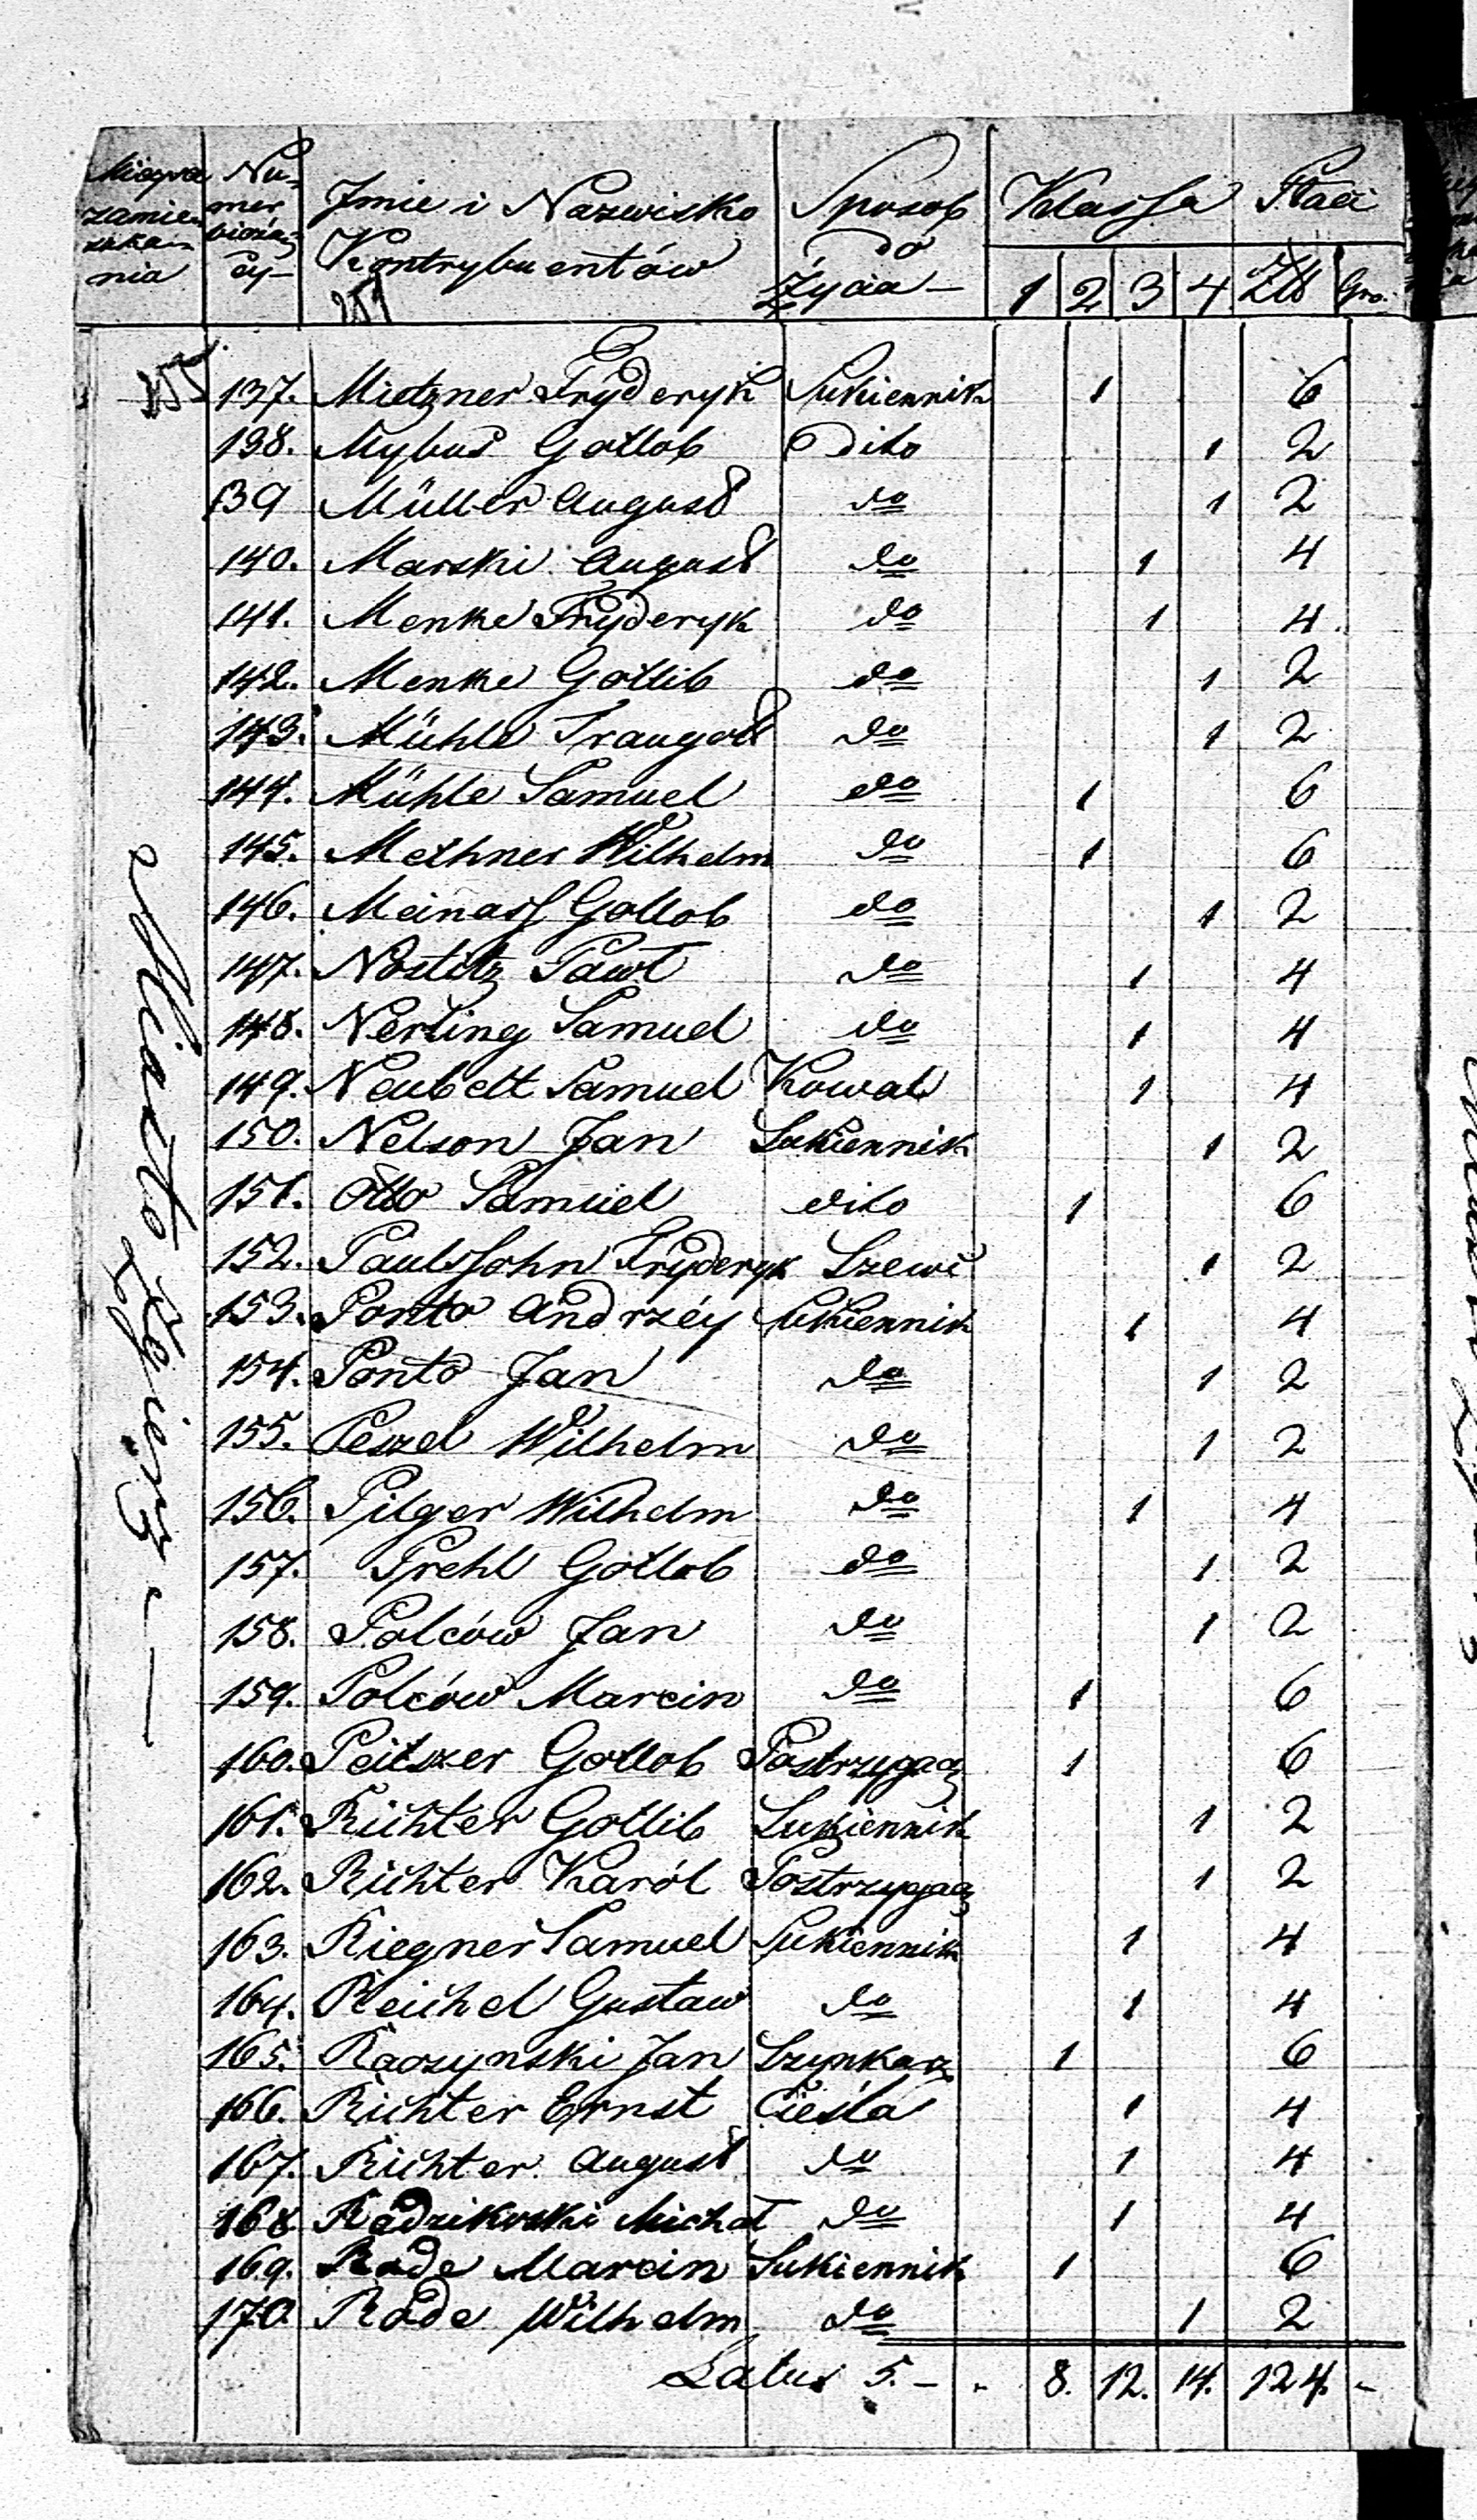 Mieysce zamieszkania Numer bieżący Jmie i Nazwisko Kontrybuentów Sposob do Życia Klassa 1 2 3 4 Płaci Złt Gro.
137. Mietzner Fryderyk Sukiennik 1 6
138. Mybus Gottlob dito 1 2
139 Müller August do 1 2
140. Marski August do 1 4
141. Menke Fryderyk do 1 4.
142. Menke Gottlib do 1 2
143. Mühle Traugott do 1 2
144. Mühle Samuel do 1 6
145. Methner Wilhelm do 1 6
146. Meinass Gottlob do 1 2
147. Nostitz Pawł do 1 4
148. Nerling Samuel do 1 4
149. Neubelt Samuel Kowal 1 4
150. Nelson Jan Sukiennik 1 2
151. Otto Samuel dito 1 6
152. Paulssohn Fryderyk Szewc 1 2
153. Ponto Andrzéy Sukiennik 1 4
154. Ponto Jan do 1 2
155. Peszel Wilhelm do 1 2
156. Pilger Wilhelm do 1 4
157. Prehl Gottlob do 1 2
158. Polców Jan do 1 2
159. Polców Marcin do 1 6
160. Peitszer Gottlob Postrzygacz 1 6
161. Richter Gottlib Sukiennik 1 2
162. Richter Karól Postrzygacz 1 2
163. Riegner Samuel Sukiennik 1 4
164. Reichel Gustaw do 1 4
165. Raczynski Jan Szynkarz 1 6
166. Richter Ernst Cieśla 1 4
167. Richter August do 1 4
168. Radzikoski Michał do 1 4
169. Rode Marcin Sukiennik 1 6
170 Rode Wilhelm do 1 2
Latus 5. - - 8. 12. 14. 124. -
Miasto Zgierz